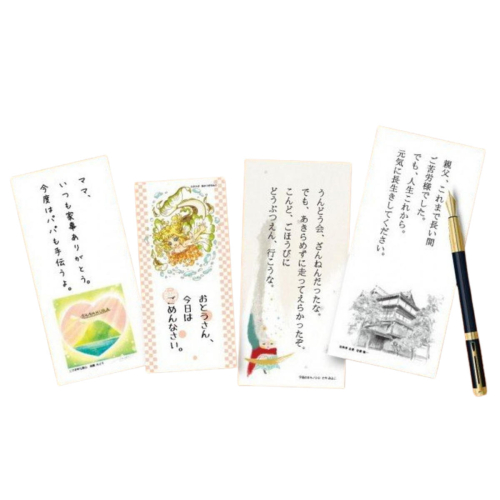 ママ、
いつも家事ありがとう。
今度はパパも手伝うよ。
おとうさん、
今日は
ごめんなさい。
うんどう会、ざんねんだったな。
でも、あきらめずに走ってえらかったぞ。
こんど、ごほうびに
どうぶつえん、行こうな。
親父、これまで長い間
ご苦労様でした。
でも、人生これから。
元気に長生きしてください。